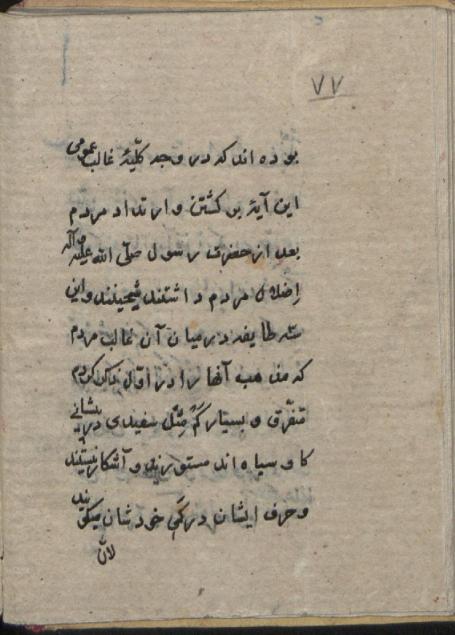 ۷۷
بوده اند که در وجه کلیهٔ غالب عمومی
این آیهٔ بر کشتن و ارتداد مردم
بعد از حضرت رسول صلّی الله علیه وآله
إضلال مردم داشتند و این
سه طایفه در میان آن غالب مردم
که مذهب آنها را در اوّل کردم
متفرّق و بسیار کم مثل سفیدی در پیشانی
کاو سیاه اند مستورند و آشکار نیستند
و حرف ایشان در کمی خودشان میکویند
لان